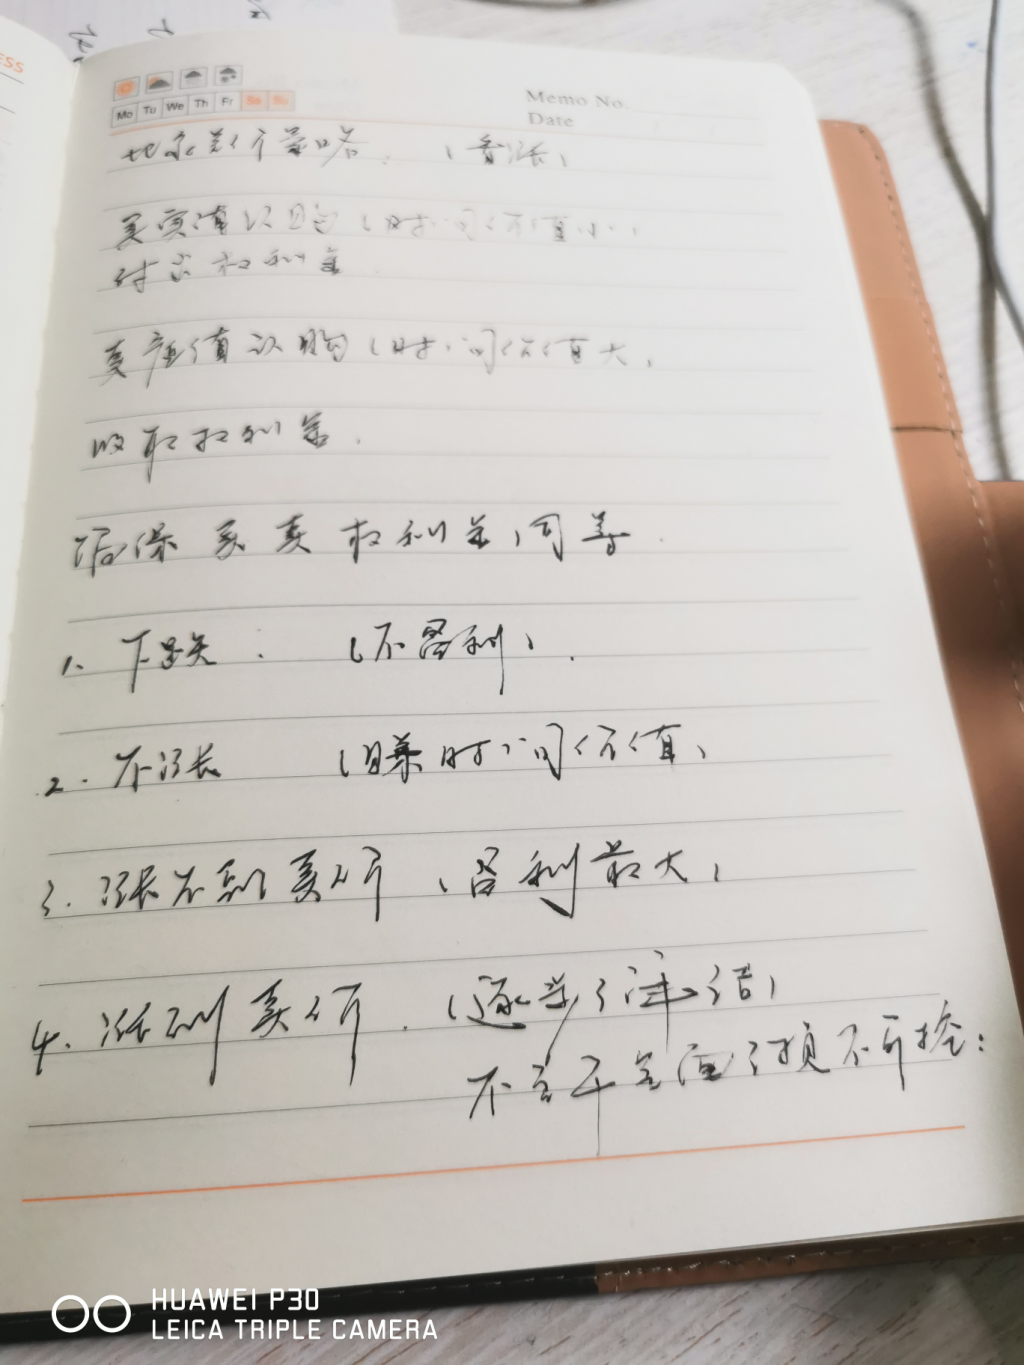 ESS
Mo Tu We Th Fr Sa Su
Memo No.
Date
策略。（看涨）
买实值认购（时间价值小）
付出权利金
卖虚值认购（时间价值大）
收取权利金．
确保买卖权利金同等．
1、下跌：（不盈利）．
2．不涨（赚时间价值）
3．涨不到卖价（盈利最大）
4．涨到卖价．（逐步了结）
HUAWEI P30
LEICA TRIPLE CAMERA